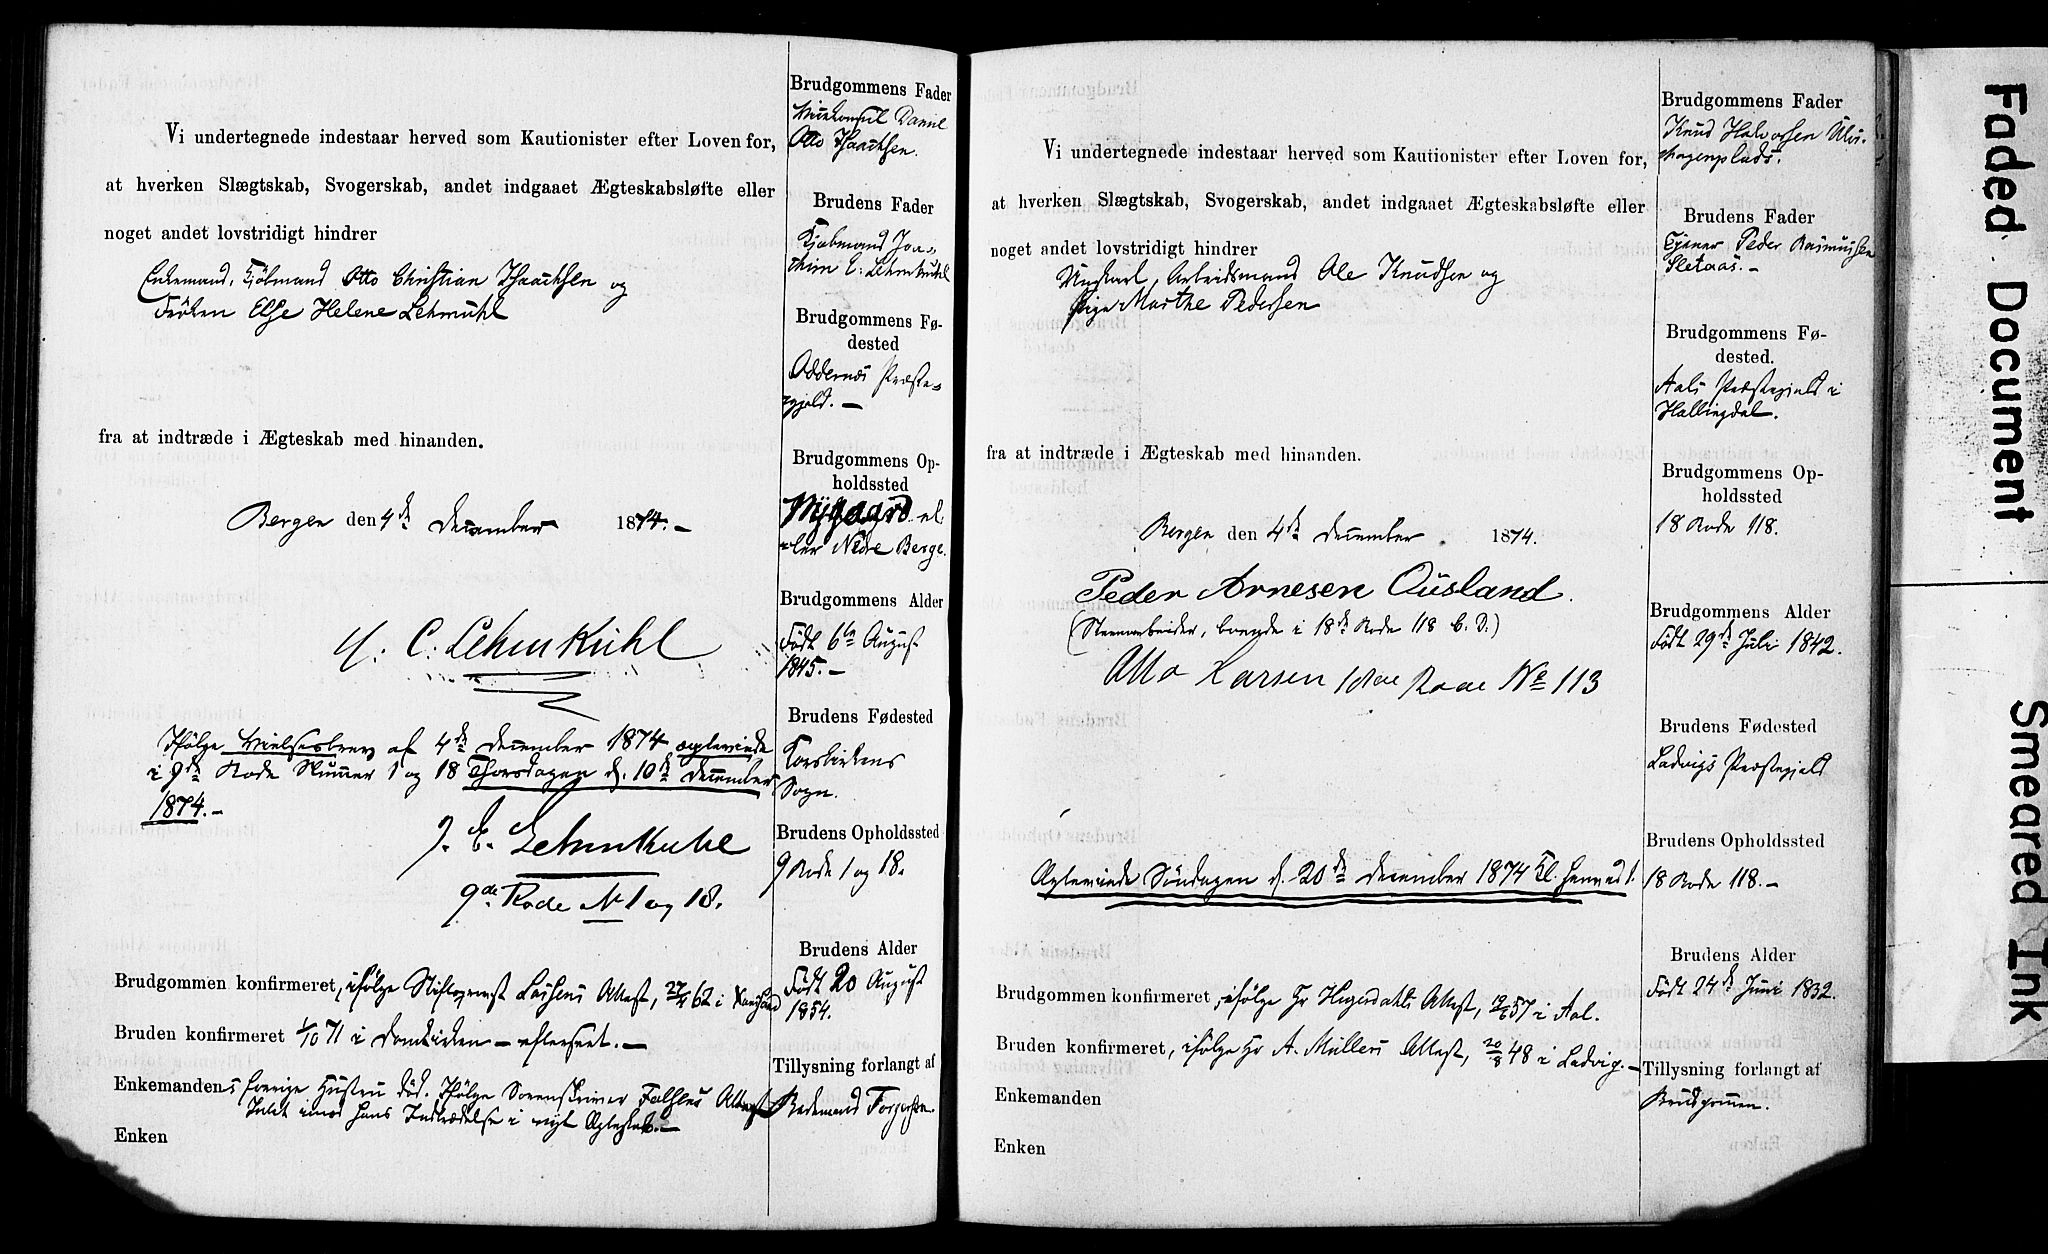 Vi undertegnede indestaar herved som Kautionister efter Loven for,
at hverken Slægtskab, Svogerskab, andet indgaaet Ægteskabsløfte eller
noget andet lovstridigt hindrer
Enkemand, Kjøbmand Otto Christian Isaachsen og
Frøken Else Helene Lehmkuhl
fra at indtræde i Ægteskab med hinanden.
Bergen den 4de December 1874.-
C. Lehmkuhl
Ifølge Vielsesbrev af 4de December 1874 ægteviede
i 9de Rode Numer 1 og 18 Thorsdagen d. 10de December
1874.-
J. E. Lehmkuhl
9de Rode No 1 og 18.
Brudgommen konfirmeret, ifølge Stiftsprovst Lassens Attest, 62 i
Bruden konfirmeret 1/10 71 i Domkirken - efterseet.-
Enkemandens forrige Hustru død. Ifølge Sorenskriver Falsens Attest
Intet imod hans Indtrædelse i nyt Ægteskab.-
Enken
Brudgommens Fader
Vicekonsul Daniel
Otto Isaachsen.
Brudens Fader
Kjøbmand Joa-
chim E. Lehmkuhl
Brudgommens Fø-
dested
Oddernes Præste-
gjeld.-
Brudgommens Op-
holdssted
Nygaard el-
ler Nedre Berge.
Brudgommens Alder
Født 6te August
1845.-
Brudens Fødested
Korskirkens
Sogn.
Brudens Opholdssted
9 Rode 1 og 18.
Brudens Alder
Født 20 August
1854.
Tillysning forlangt af
Rodemand
Vi undertegnede indestaar herved som Kautionister efter Loven for,
at hverken Slægtskab, Svogerskab, andet indgaaet Ægteskabsløfte eller
noget andet lovstridigt hindrer
Ungkarl, Arbeidsmand Ole Knudsen og
Pige Marthe Pedersen
fra at indtræde i Ægteskab med hinanden.
Bergen den 4de December 1874.
Peder Arnesen Ousland.
(Steenarbeider, boende i 18de Rode 118)
Larsen 18de Rode No 113
Ægteviede Søndagen d. 20de December 1874 Kl.
Brudgommen konfirmeret, ifølge Hr Attest, 57 i Aal.
Bruden konfirmeret, ifølge Hr A. Müllers Attest, 20/8 48 i Ladvig.-
Enkemanden
Enken
Brudgommens Fader
Knud Halvorsen Ulvs-
hagenplads.
Brudens Fader
Peder Rasmussen
Sletaas.-
Brudgommens Fø-
dested.
Aals Præstegjeld i
Hallingdal.
Brudgommens Op-
holdssted
18 Rode 118.
Brudgommens Alder
Født 29de Juli 1842.
Brudens Fødested
Ladvigs Præstegjeld
Brudens Opholdssted
18 Rode 118.-
Brudens Alder
Født 24de Juni 1832.
Tillysning forlangt af
Brudgommen.
Faded Document
Smeared Ink